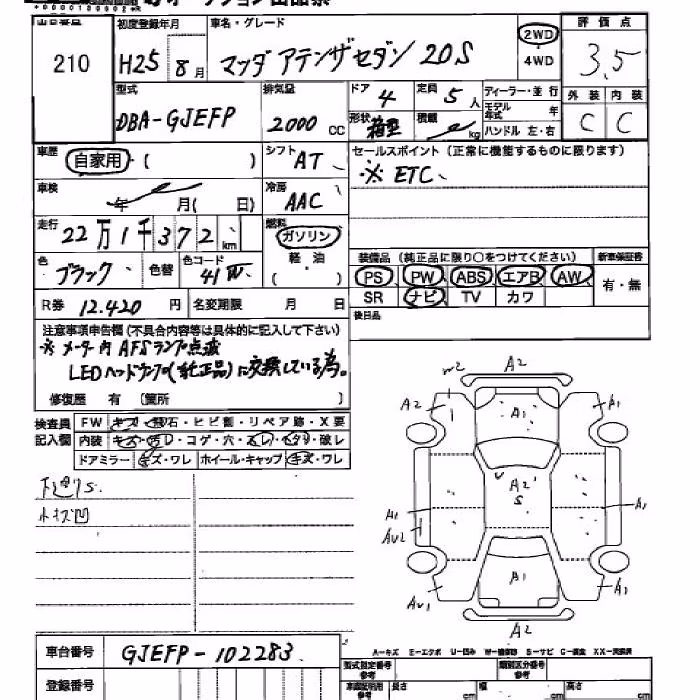 出品番号 初度登録年月 車名・グレード 評価点
210 H25 8月 マツダ アテンザセダン 20S 2WD ・ 4WD 3.5
型式 排気量 ドア 4 定員 5人 ディーラー・並行 外装 内装
DBA-GJEFP 2000cc 形状 箱型 積載 kg モデル年式 年 ハンドル 左・右 C C
車歴 自家用・( ) シフト AT セールスポイント(正常に機能するものに限ります)
※ ETC
車検 年 月( 日) 冷房 AAC
走行 22万1千372km 燃料 ガソリン
軽・油
装備品(純正品に限り○をつけてください) 新車保証書
PS PW ABS エアB AW 有・無
色 ブラック 色替 色コード 41W
SR ナビ TV カワ
R券 12.420円 名変期限 月 日 後日品
注意事項申告欄(不具合内容等は具体的に記入して下さい)
※メーター内AFSランプ点滅
LEDヘッドランプ(純正品)に交換している為。
修復歴 有 〔箇所 〕
検査員記入欄 FW キズ・飛石・ヒビ割・リペア跡・X要
内装 キズ・汚レ・コゲ・穴・スレ・ヘタリ・破レ
ドアミラー キズ・ワレ ホイール・キャップ キズ・ワレ
下廻りS
小キズ凹
A2
W2
A2 A1 A1
A2
S
A1 A1
AU2
A1
AU1 A1
A2
A-キズ E-エクボ U-凹ミ W-補修跡 S-サビ C-腐食 XX-交換済
車台番号 GJEFP-102283
登録番号
型式指定番号 参考 類別区分番号 参考
長さ cm 幅 cm 高さ cm